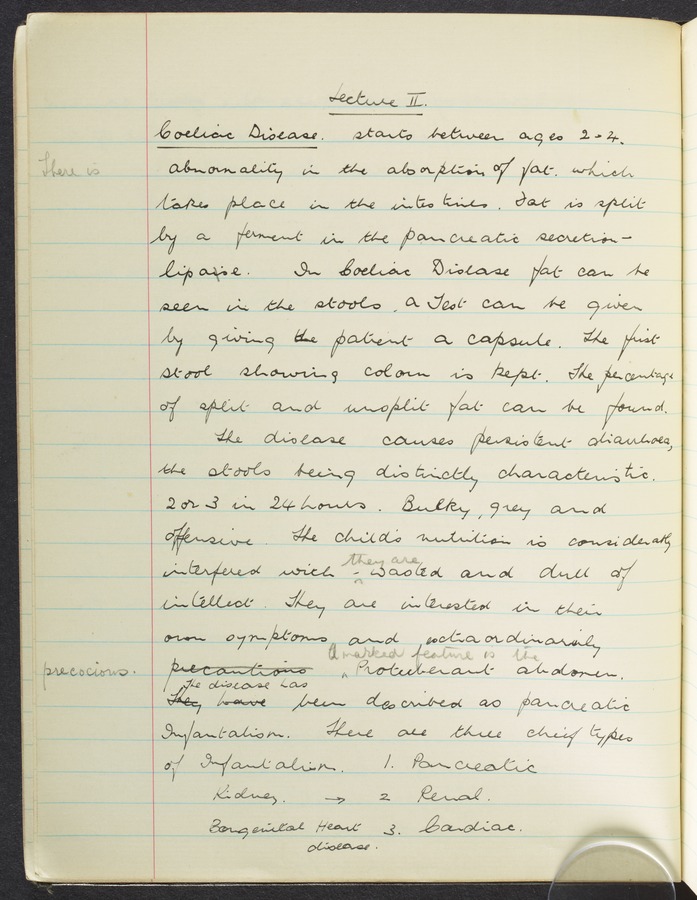 Lecture II.
Coeliac Disease. starts between ages 2-4.
There is
abnormality in the absorption of fat. which
takes place in the intestines. Fat is split
by a ferment in the pancreatic secretion -
lipase. In Coeliac Disease fat can be
seen in the stools. A Test can be given
by giving the patient a capsule. The first
stool showing colour is kept. The percentage
of split and unsplit fat can be found.
The disease causes persistent diarrhoea,
the stools being distinctly characteristic.
2 or 3 in 24 hours. Bulky, grey and
offensive. The child's nutrition is considerably
they are
interfered with - wasted and dull of
intellect. They are interested in their
own symptoms and extraordinarily
A marked feature is the
precocious. precautions Protuberant abdomen.
The disease has
They have been described as pancreatic
Infantalism. There are three chief types
of Infantalism. 1. Pancreatic
Kidney. → 2 Renal.
Congenital Heart 3. Cardiac.
disease.